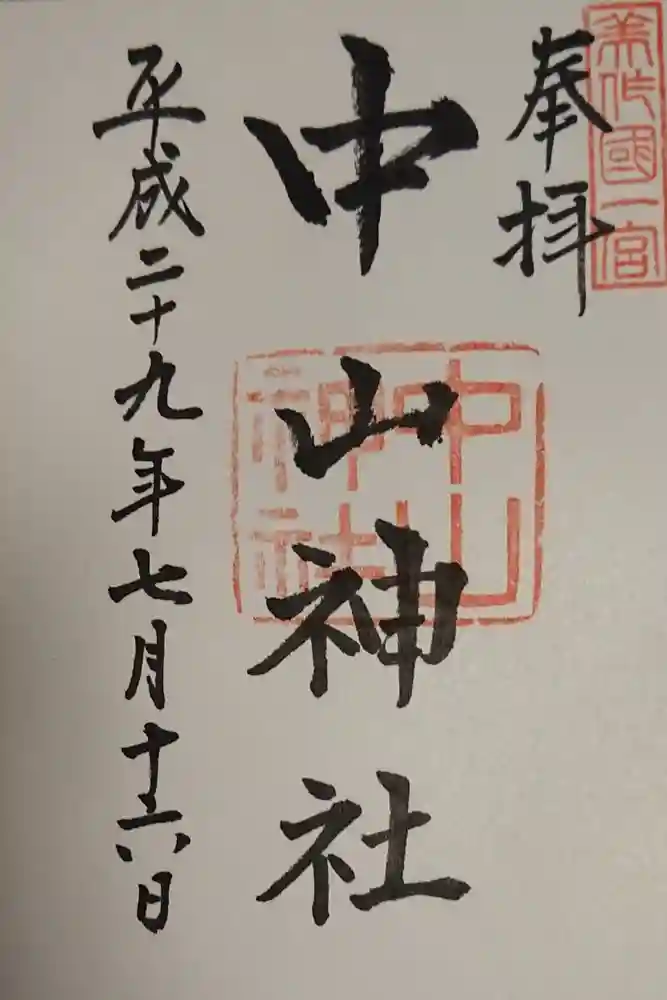 美作國一宮
奉拝
中山神社
中山
神社
平成二十九年七月十六日